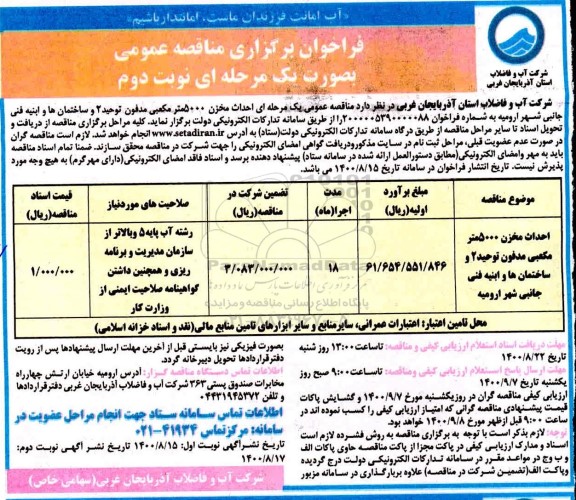 «آب امانت فرزندان ماست، امانتدار باشیم»
شرکت آب و فاضلاب
استان آذربایجان غربی
فراخوان برگزاری مناقصه عمومی
بصورت یک مرحله ای نوبت دوم
شرکت آب و فاضلاب استان آذربایجان غربی در نظر دارد مناقصه عمومی یک مرحله ای احداث مخزن ۵۰۰۰متر مکعبی مدفون توحید۲ و ساختمان ها و ابنیه فنی
جانبی شهر ارومیه به شماره فراخوان ۲۰۰۰۰۰۵۳۹۰۰۰۰۰۸۸را از طریق سامانه تدارکات الکترونیکی دولت برگزار نماید. کلیه مراحل برگزاری مناقصه از دریافت و
تحویل اسناد تا سایر مراحل مناقصه از طریق درگاه سامانه تدارکات الکترونیکی دولت(ستاد) به آدرس www.setadiran.ir انجام خواهد شد. لازم است مناقصه گران
در صورت عدم عضویت قبلی، مراحل ثبت نام در سایت مذکورودریافت گواهی امضای الکترونیکی را جهت شرکت در مناقصه محقق سازند. ضمنا تمام اسناد مناقصه
باید به مهر وامضای الکترونیکی(مطابق دستورالعمل ارائه شده در سامانه ستاد) پیشنهاد دهنده برسد و اسناد فاقد امضای الکترونیکی(دارای مهرگرم) به هیچ وجه مورد
پذیرش نیست. تاریخ انتشار فراخوان در سامانه تاریخ ۱۴۰۰/۸/۱۵ می باشد.
موضوع مناقصه
مبلغ برآورد اولیه(ریال)
مدت اجرا(ماه)
تضمین شرکت در مناقصه(ریال)
صلاحیت های موردنیاز
قیمت اسناد مناقصه(ریال)
احداث مخزن ۵۰۰۰متر
مکعبی مدفون توحید۲ و
ساختمان ها و ابنیه فنی
جانبی شهر ارومیه
۶۱/۶۵۴/۵۵۱/۸۴۶
۱۸
۳/۰۸۳/۰۰۰/۰۰۰
رشته آب پایه ۵ وبالاتر از
سازمان مدیریت و برنامه
ریزی و همچنین داشتن
گواهینامه صلاحیت ایمنی از
وزارت کار
۱/۰۰۰/۰۰۰
محل تامین اعتبار: اعتبارات عمرانی، سایرمنابع و سایر ابزارهای تامین منابع مالی(نقد و اسناد خزانه اسلامی)
مهلت دریافت اسناد استعلام ارزیابی کیفی و مناقصه: تاساعت ۱۳:۰۰ روز شنبه
تاریخ ۱۴۰۰/۸/۲۲
مهلت ارسال پاسخ استعلام ارزیابی کیفی ومناقصه: تاساعت ۹:۰۰ صبح روز
یکشنبه تاریخ ۱۴۰۰/۹/۷
ارزیابی کیفی مناقصه گران در روزیکشنبه مورخ ۱۴۰۰/۹/۷ و گشایش پاکات
قیمت پیشنهادی مناقصه گرانی که امتیاز ارزیابی کیفی را کسب نموده اند در
ساعت ۹:۰۰ قبل ازظهر مورخ ۱۴۰۰/۹/۸ خواهد بود.
توجه: لازم بذکر است با توجه به برگزاری مناقصه به روش فشرده لازم است
اسناد و مدارک ارزیابی کیفی در پاکت مجزا از پاکت مناقصه حاوی پاکات الف
و ب و ج در مواعد مقرر در سامانه تدارکات الکترونیکی دولت درج گردیده
وپاکت الف(تضمین شرکت در مناقصه) علاوه بربارگذاری در سامانه مزبور
بصورت فیزیکی نیز بایستی قبل از آخرین مهلت ارسال پیشنهادها پس از رویت
دفترقراردادها تحویل دبیرخانه گردد.
اطلاعات تماس دستگاه مناقصه گزار: آدرس ارومیه خیابان ارتش چهارراه
مخابرات صندوق پستی ۳۶۳ شرکت آب و فاضلاب آذربایجان غربی دفترقراردادها
و تلفن ۰۴۴۳۱۹۴۵۳۷۲
اطلاعات تماس سامانه ستاد جهت انجام مراحل عضویت در
سامانه: مرکز تماس ۴۱۹۳۴-۰۲۱
تاریخ نشرآگهی نوبت اول: ۱۴۰۰/۸/۱۵ تاریخ نشر آگهی نوبت دوم:
۱۴۰۰/۸/۱۷
شرکت آب و فاضلاب آذربایجان غربی(سهامی خاص)